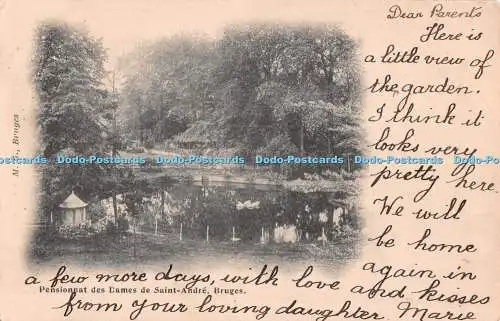 Dear Parents
Here is
a little view of
the garden.
I think it
looks very
pretty here.
We will
be home
again in
a few more days, with love and kisses
from your loving daughter, Marie
Pensionnat des Dames de Saint-André, Bruges.
Bruges
Dodo-Postcards Dodo-Postcards Dodo-Postcards Dodo-Postcards Dodo-Postcards